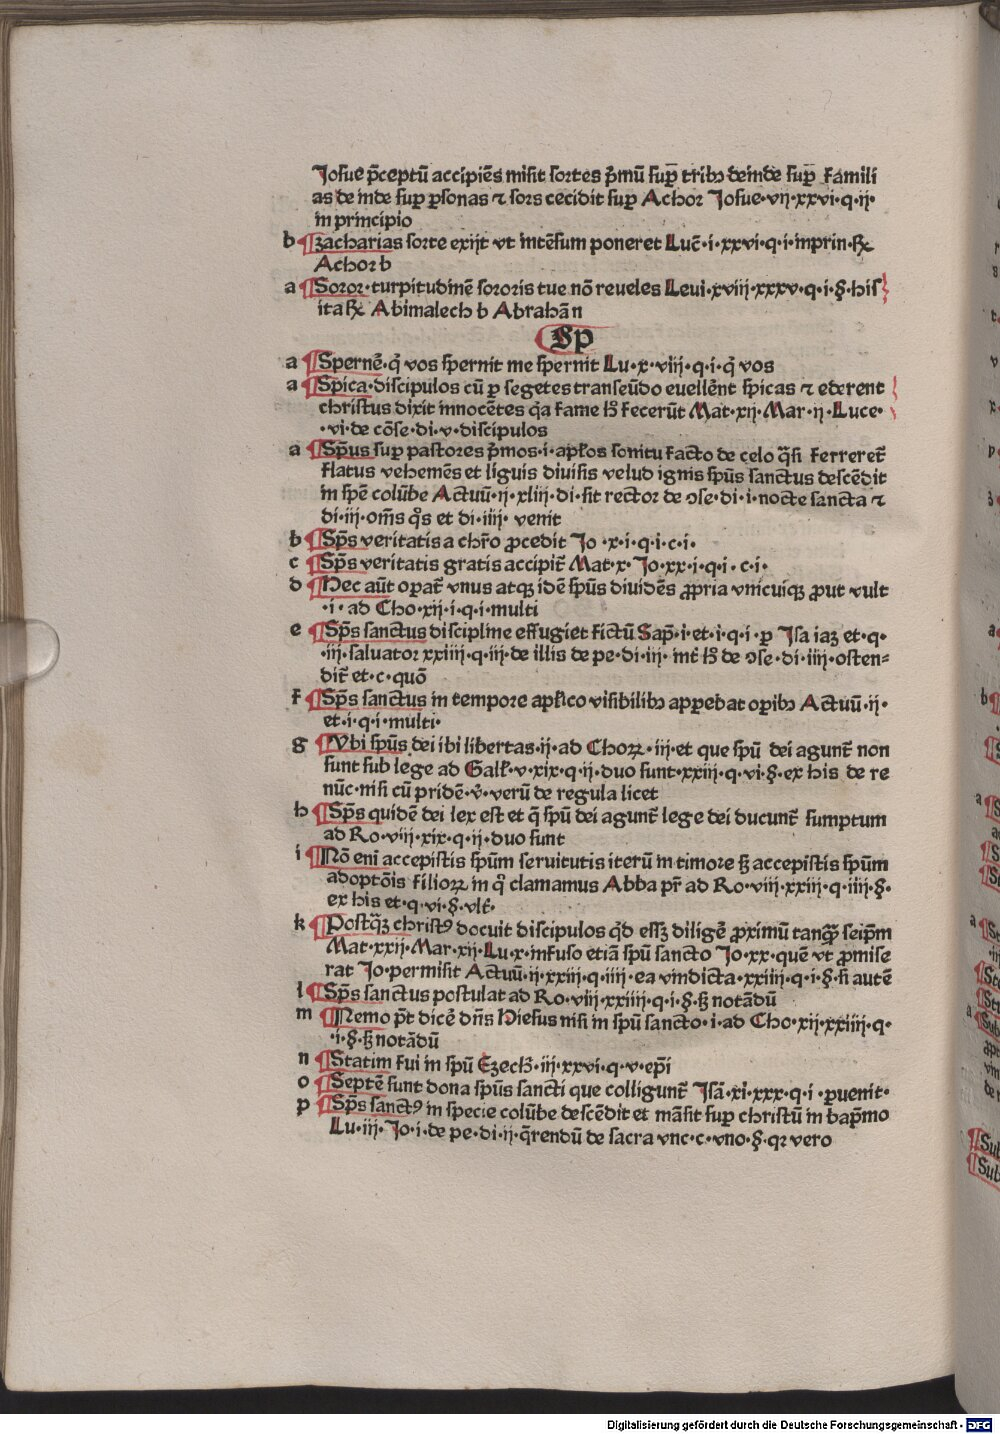 Josue p̄ceptū accipiēs misit sortes p̄mū sup̄ tribꝫ deinde sup̄ famili
as de inde suꝑ ꝑsonas ⁊ sors cecidit suꝑ Achor Josue·vij·xxvi·q·ij·
in principio
b ¶zacharias sorte exijt vt intēsum poneret Lucē·i·xxvi·q·i·inprin·℞
Achor b
a ¶Soror·turpitudinē sororis tue nō reueles Leui·xviij·xxxv·q·i·§·his
ita ℞ Abimalech b Abrahā n
Sp
a ¶Spernē·q̇ vos spernit me spernit Lu·x·viij·q·i·q̇ vos
a ¶Spica·discipulos cū ꝑ segetes transeūdo euellēnt spicas ⁊ ederent
christus dixit innocētes q̇a fame lꝫ fecerūt Mat·xij·Mar·ij·Luce·
·vi·de cōse·di·v·discipulos
a ¶Sp̄us suꝑ pastores p̄mos·i·apl̄os sonitu facto de celo q̄si ferreret̄
flatus vehemēs et liguis diuisis velud ignis sp̄us sanctus descēdit
in spē colūbe Actuū·ij·xliij·di·sit rector de ↄse·di·i·nocte sancta ⁊
di·iij·om̄s q̊s et di·iiij· venit
b ¶Sp̄s veritatis a chr̄o ꝓcedit Jo ·x·i·q·i·c·i·
c ¶Sp̄s veritatis gratis accipit̄ Mat·x·Jo·xx·i·q·i·c·i·
d ¶Hec aūt oꝑat̄ vnus atqꝫ idē sp̄us diuidēs ꝓpria vnicuiqꝫ ꝓut vult
·i· ad Cho·xij·i·q·i·multi
e ¶Sp̄s sanctus discipline effugiet fictū Sap̄·i·et·i·q·i·ꝑ Jsa iaꝫ et·q·
·iij·saluator xxiiij·q·iij·de illis de pe·di·iij· int̄ lꝫ de ↄse·di·iiij·osten=
dit̄ et·c·quō
f ¶Sp̄s sanctus in tempore apl̄ico visibilibꝫ apꝑebat oꝑibꝫ Actuū·ij·
et·i·q·i·multi·
g ¶Vbi sp̄us dei ibi libertas·ij·ad Choꝝ·iij·et que sp̄u dei agunt̄ non
sunt sub lege ad Gall̄·v·xix·q·ij·duo sunt·xxiij·q·vi·§·ex his de re
nūc·nisi cū pridē·v̊·verū de regula licet
h ¶Sp̄s quidē dei lex est et q̄ sp̄u dei agunt̄ lege dei ducunt̄ sumptum
ad Ro·viij·xix·q·ij·duo sunt
i ¶Nō eni accepistis sp̄um seruitutis iterū in timore sꝫ accepistis sp̄um
adoptōis filioꝝ in q̊ clamamus Abba pr̄ ad Ro·viij·xxiij·q·iiij·§·
ex his et·q·vi·§·vlt̄·
k ¶Postq̄ꝫ christꝰ docuit discipulos q̊d essꝫ diligē ꝓximū tanq̄ꝫ seip̄m
Mat·xxij·Mar·xij·Lu·x·infuso etiā sp̄u sancto Jo·xx·quē vt ꝓmise
rat Jo·permisit Actuū·ij·xxiij·q·iiij·ea vindicta·xxiiij·q·i·§·si autē
l ¶Sp̄s sanctus postulat ad Ro·viij·xxiiij·q·i·§·sꝫ notādū
m ¶Nemo p̄t dicē dn̄s Hiesus nisi in sp̄u sancto·i·ad Cho·xij·xxiiij·q·
·i·§·sꝫ notādū
n ¶Statim fui in sp̄u Ezechꝫ·iij·xxvi·q·v·ep̄i
o ¶Septē sunt dona sp̄us sancti que colligunt̄ Jsā·xi·xxx·q·i·ꝑuenit·
p ¶Sp̄s sanctꝰ in specie colūbe descēdit et māsit suꝑ christū in bap̄mo
Lu·iij·Jo·i·de pe·di·ij·q̄rendū de sacra vnc·c·vno·§·qꝛ vero
Digitalisierung gefördert durch die Deutsche Forschungsgemeinschaft - DFG